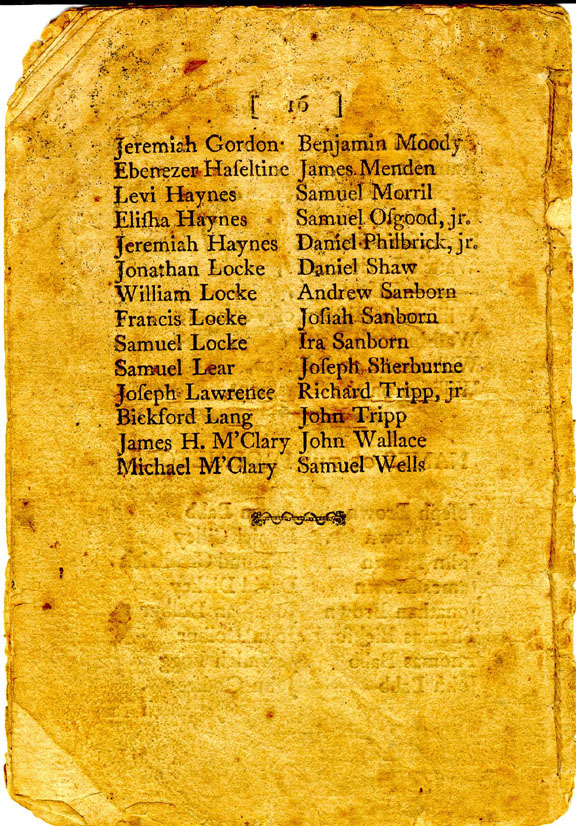 [ 16 ]
Jeremiah Gordon Benjamin Moody
Ebenezer Haſeltine James Menden
Levi Haynes Samuel Morril
Eliſha Haynes Samuel Oſgood, jr.
Jeremiah Haynes Daniel Philbrick, jr.
Jonathan Locke Daniel Shaw
William Locke Andrew Sanborn
Francis Locke Joſiah Sanborn
Samuel Locke Ira Sanborn
Samuel Lear Joſeph Sherburne
Joſeph Lawrence Richard Tripp, jr.
Bickford Lang John Tripp
James H. M'Clary John Wallace
Michael M'Clary Samuel Wells